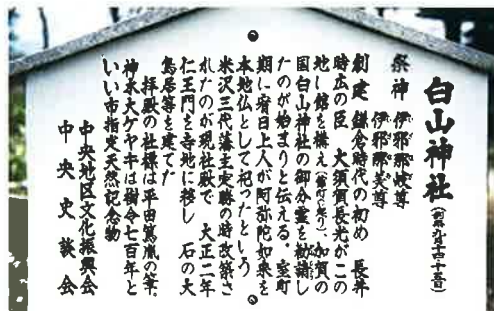 白山神社(例祭九月十四・十五日)
祭神 伊邪那岐尊
伊邪那美尊
創建 鎌倉時代の初め 長井
時広の臣 大須賀長光がこの
地に館を構え(館ノ七廻り)、加賀の
国白山神社の御分霊を勧請し
たのが始まりと伝える。室町
期に宥日上人が阿弥陀如来を
本地仏として祀ったという
米沢三代藩主実勝の時改築さ
れたのが現社殿で 大正二年
仁王門を寺地に移し 石の大
鳥居等を建てた
拝殿の社標は平田篤胤の筆。
神木大ケヤキは樹令七百年と
いい市指史天然記念物
中央地区文化振興会
中央史談会